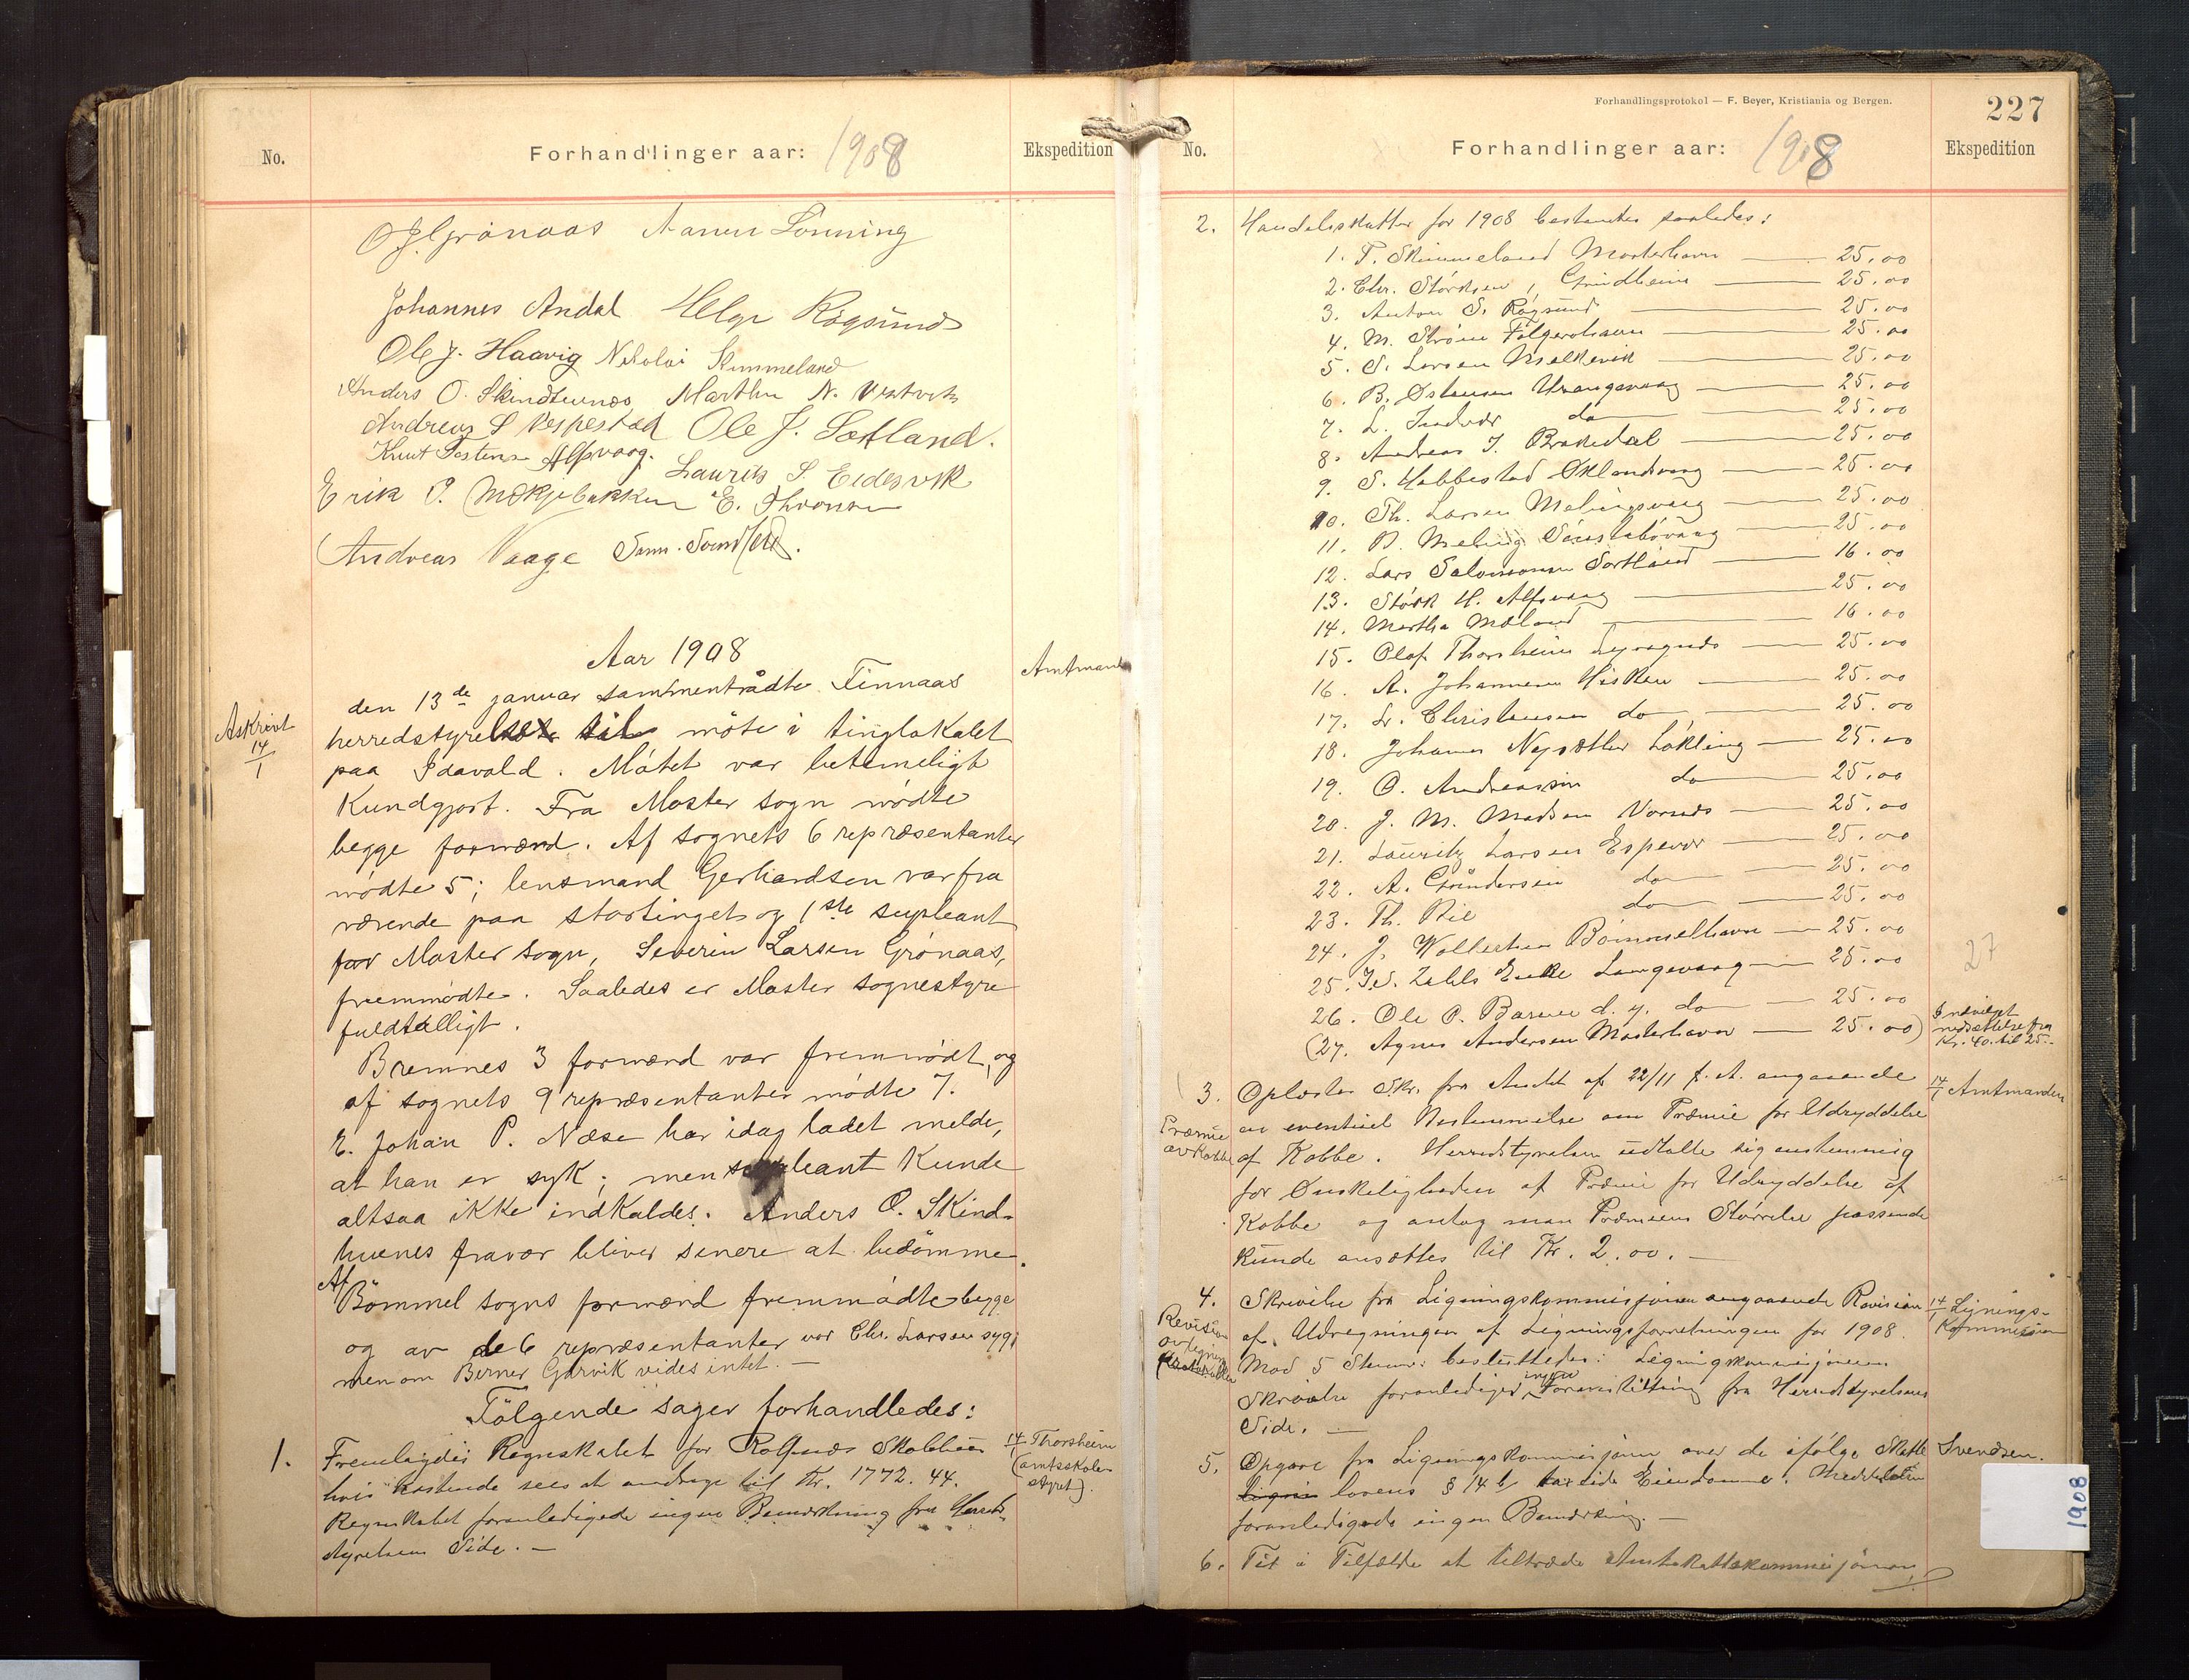 No.
Forhandlinger aar: 1908
Ekspedition
O J. Grönaas
Johannes Andal Helge Rögsund
Ole J. Haavig Nikolai Skimmeland
Anders O. Skindhuenæs Marthin N.
Andreas S Vespestad Ole J. Sætland.
Knut Alfsvaag. Laurits S. Eidesvik
Erik P. E. Thronsen
Andreas Vaage
Aar 1908
Amtmand
Askrivt 14/1
den 13de januar sammentrådte Finnaas
herredstyrelse til möte i tinglokalet
paa Idavold. Mötet var betimeligt
Kundgjort. Fra Moster sogn mödte
begge formænd. Af sognets 6 repræsentanter
mödte 5; lensmand Gerhardsen var fra
værende paa stortinget og 1ste supleant
for Moster sogn, Severin Larsen Grönaas,
fremmödte. Saaledes er Moster sognestyre
fuldtalligt.
Bremnes 3 formænd var fremmödt, og
af sognets 9 repræsentanter mödte 7.
E. Johan P. Næse har idag ladet melde,
at han er syk; men supleant Kunde
altsaa ikke indkaldes. Anders O. Skind-
huenes fravær bliver senere at bedömme.
Af Bömmel sogns formænd fremmödte begge
og av de 6 repræsentanter var Chr. Larsen syg;
men om Berner Gärvik vides intet. —
Fölgende sager forhandledes:
1. Fremlagdes Regnskabet for Rolfsnæs Skolehus
hvis kostende sees at andrage til Kr. 1772.44.
Regnskabet foranledigede ingen Bemærkning fra Herreds-
styrelsens Side. —
14/1 Thorsheim
(amtsskole-
styret).
Forhandlingsprotokol — F. Beyer, Kristiania og Bergen.
227
No.
Forhandlinger aar: 1908
Ekspedition
2. Handelsskatten for 1908 bestemtes saaledes:
1. T. Skimmeland Mosterhavn — 25.00
2. Chr. Störksen, Grindheim — 25.00
3. Anton S. Rögsund — 25.00
4. M. Ström Folgerøhavn — 25.00
5. S. Larsen Mælkevik — 25.00
6. B. Østensen Urangsvaag — 25.00
7. L. Indvær do — 25.00
8. Andreas J. Brakedal — 25.00
9. S. Habbestad Øklandsvaag — 25.00
10. Th. Larsen Melingsvaag — 25.00
11. B. Meling Sönstabövaag — 25.00
12. Lars Salomonsen Sortland — 16.00
13. Störk H. Alfsvaag — 25.00
14. Martha Mæland — 16.00
15. Olaf Thorsheim — 25.00
16. A. Johannesen Hisken — 25.00
17. Chr. Christensen do — 25.00
18. Johannes Nysæther Lökling — 25.00
19. O. Andreassen do — 25.00
20. J. M. Madsen Vornæs — 25.00
21. Lauritz Larsen Espevær — 25.00
22. A. Gundersen do — 25.00
23. Th. do — 25.00
24. J. Wollertsen Bömmelhavn — 25.00
25. Enke Langevaag — 25.00
26. Ole O. d. y. do — 25.00
(27. Agnes Andersen Mosterhavn — 25.00)
27
Indvilget
nedsættelse fra
Kr. 40. til 25.
3. Oplæstes Skr. fra Amtet af 22/11 f. A. angaaende
en eventuel Bestemmelse om Præmie for Udryddelse
af Kobbe. Herredstyrelsen udtalte sig enstemmig
for Ønskeligheden af Præmie for Udryddelse af
Kobbe og antog man Præmiens Størrelse passende
kunde ansættes til Kr. 2.00. —
Præmie
av Kobbe
14/1 Amtmanden
4. Skrivelse fra Ligningskommisjonen angaaende Revision
af Udregningen af Ligningsforretningen for 1908.
Mod 5 Stemmer besluttedes: Ligningskommisjonens
Skrivelse foranlediger ingen Foranstaltning fra Herredstyrelsens
Side. —
Revision
av ligning
14/1 Lignings-
Kommission
5. Opgave fra Ligningskommisjonen over de ifölge Skatte
lovens § 14 b Eiendomme. Meddelelsen
foranledigede ingen Bemærkning. —
Svendsen.
6. Til i Tilfælde at tiltræde Amtsskattekommisjonen
1908